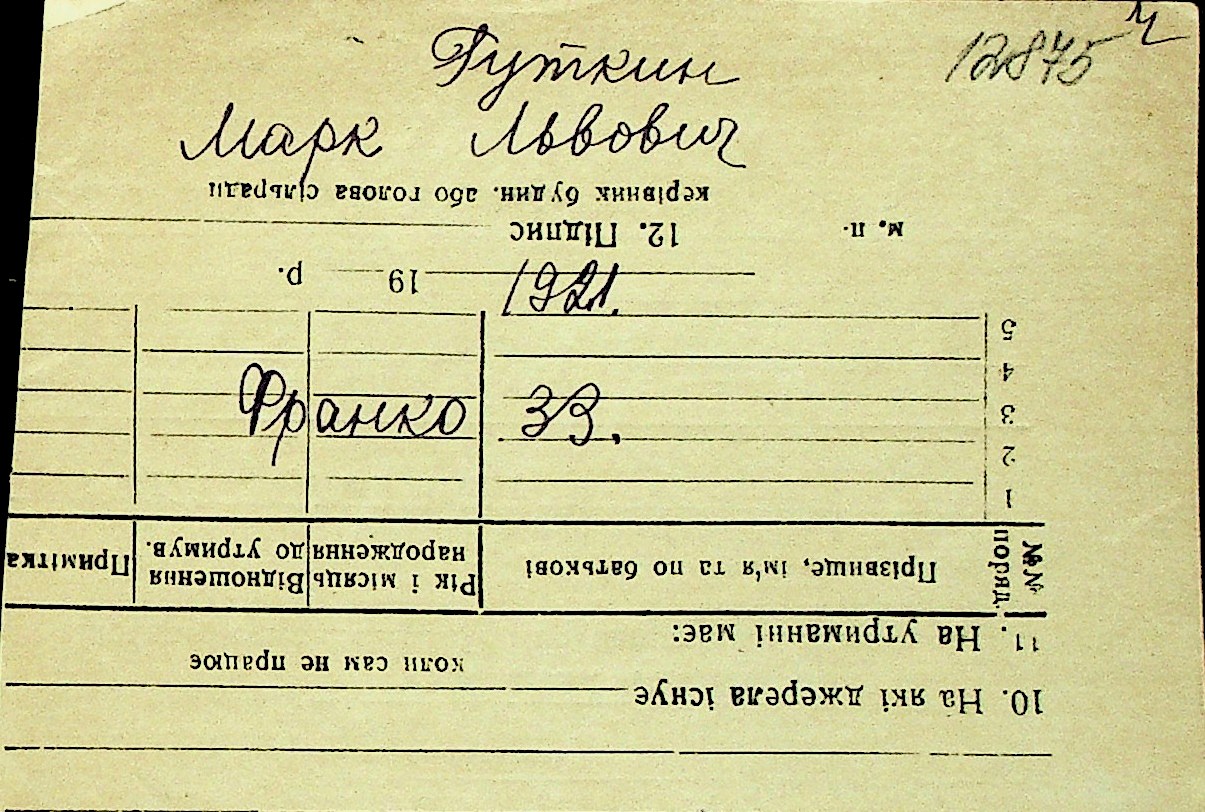 Гуткин
12875
Марк Львович
1921.
Франко 33.
10. На які джерела існує
коли сам не працює
11. На утриманні має:
№№ поряд.
Прізвище, ім'я та по батькові
Рік і місяць народження
Відношення до утримув.
Примітка
1
2
3
4
5
19 р.
м. п.
12. Підпис
керівник будин. або голова сільради